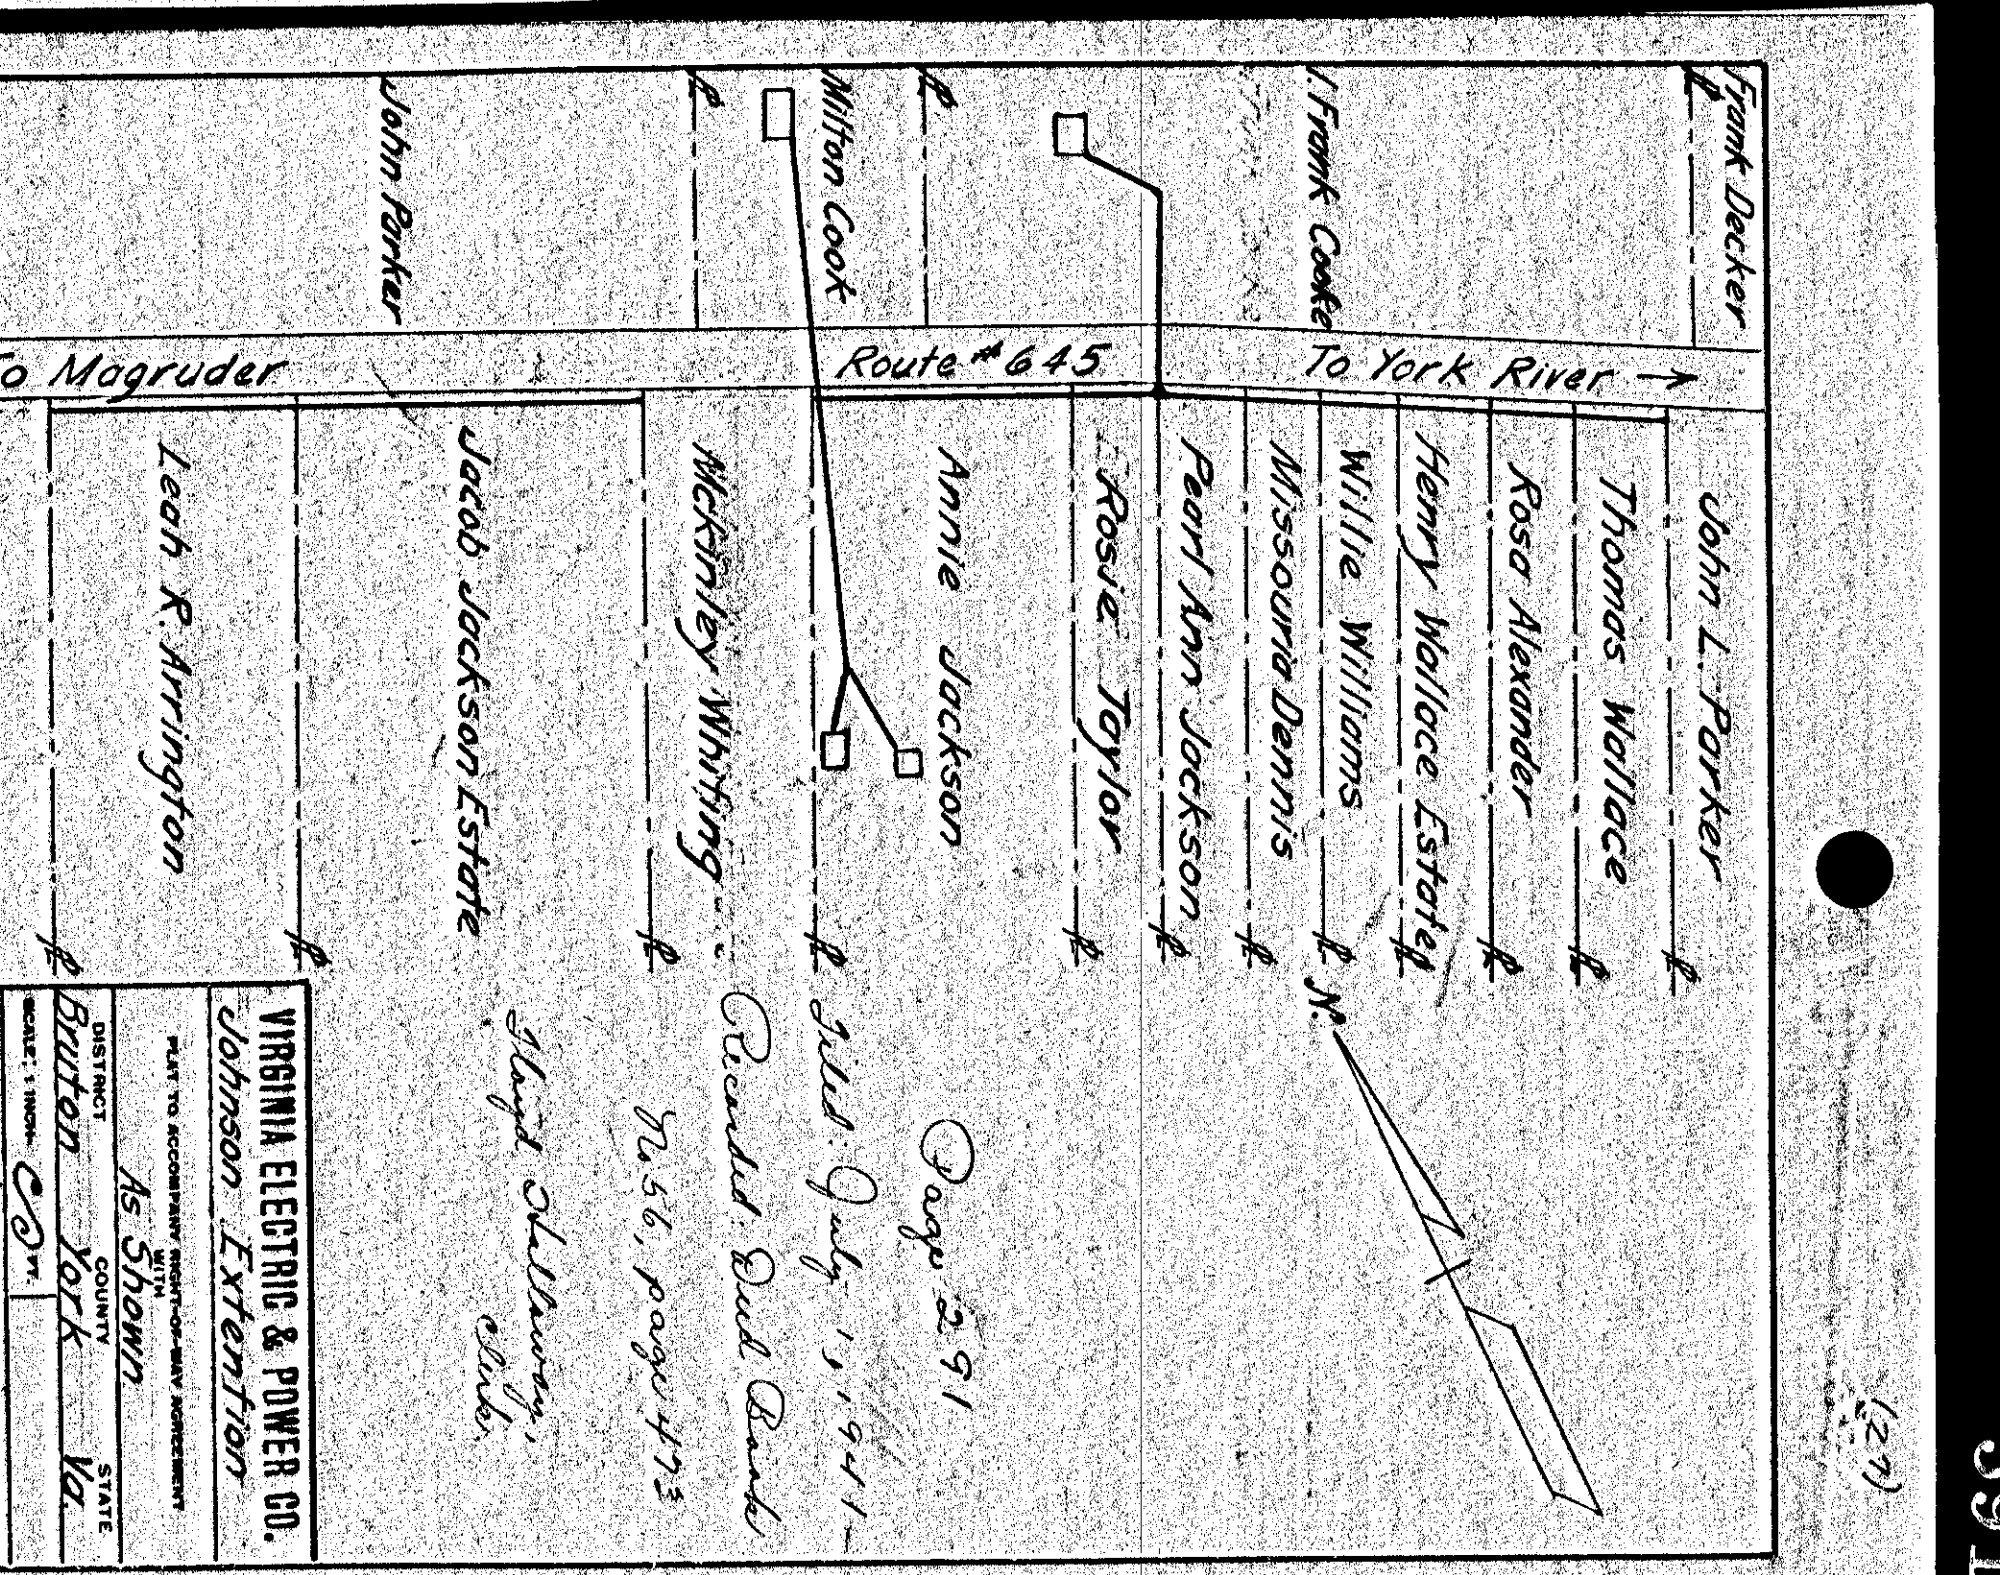 Frank Decker
I. Frank Cooke
Milton Cook
John Parker
To Magruder
Route #645
To York River →
John L. Parker
Thomas Wallace
Rosa Alexander
Henry Wallace Estate
Willie Williams
Missouria Dennis
Pearl Ann Jackson
Rosie Taylor
Annie Jackson
McKinley Whiting
Jacob Jackson Estate
Leah R. Arrington
N.
Page 291
Filed: July 1, 1941-
Recorded: Deed Book
No 56, page 473
Floyd Hallaway,
Clerk.
VIRGINIA ELECTRIC & POWER CO.
Johnson Extention
PLAT TO ACCOMPANY RIGHT-OF-WAY AGREEMENT
WITH
As Shown
DISTRICT COUNTY STATE
Bruton York Va.
SCALE: 1 INCH= FT.
(27)
391